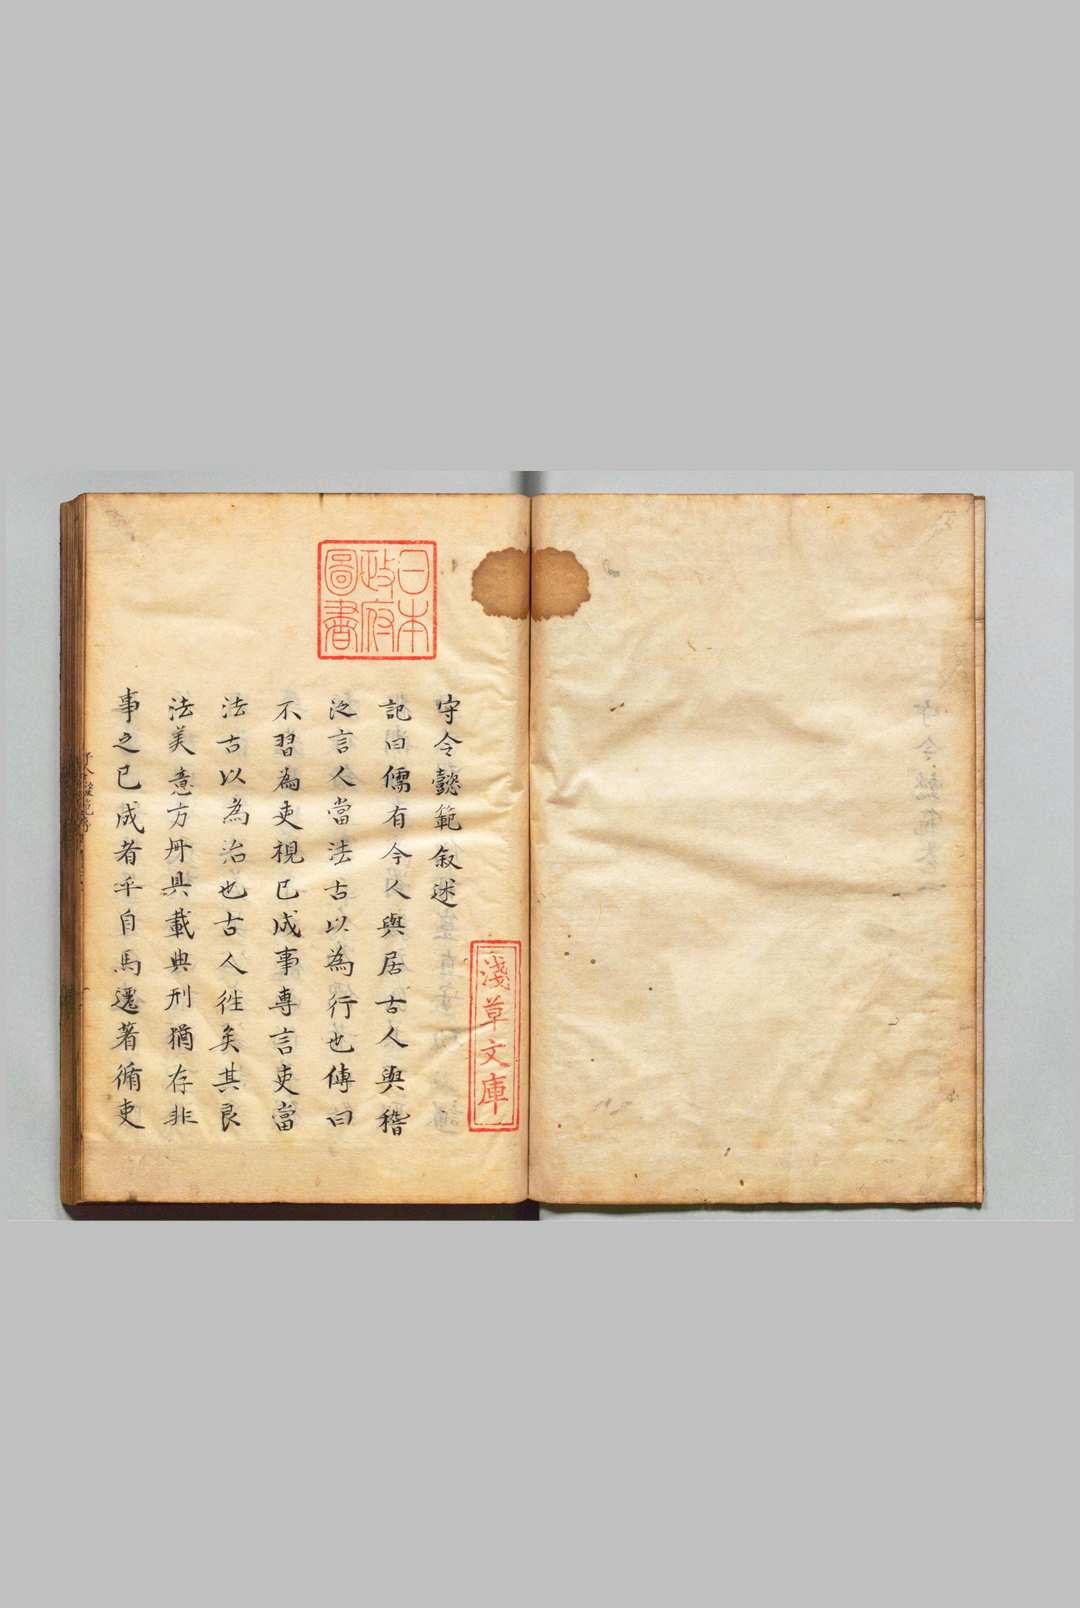 守令懿範叙述
記曰儒有今人與居古人與稽
泛言人當法古以為行也傳曰
不習為吏視已成事專言吏當
法古以為治也古人徃矣其良
法美意方冊具載典刑猶存非
事之已成者乎自馬遷著循吏
日本
政府
圖書
淺草文庫